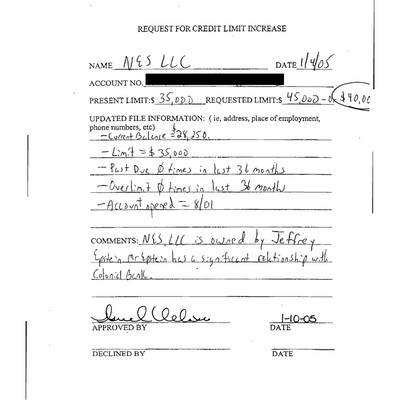 REQUEST FOR CREDIT LIMIT INCREASE
NAME NES LLC DATE 1/4/05
ACCOUNT NO.
PRESENT LIMIT:$ 35,000 REQUESTED LIMIT:$ 45,000 - $40,00
UPDATED FILE INFORMATION: ( ie, address, place of employment,
phone numbers, etc)
- Current Balance = $28,250.
- Limit = $35,000
- Past Due Ø times in last 36 months
- Overlimit Ø times in last 36 months
- Account opened = 8/01
COMMENTS: NES, LLC is owned by Jeffrey
Epstein. Mr Epstein has a significant relationship with
Colonial Bank.
1-10-05
APPROVED BY DATE
DECLINED BY DATE